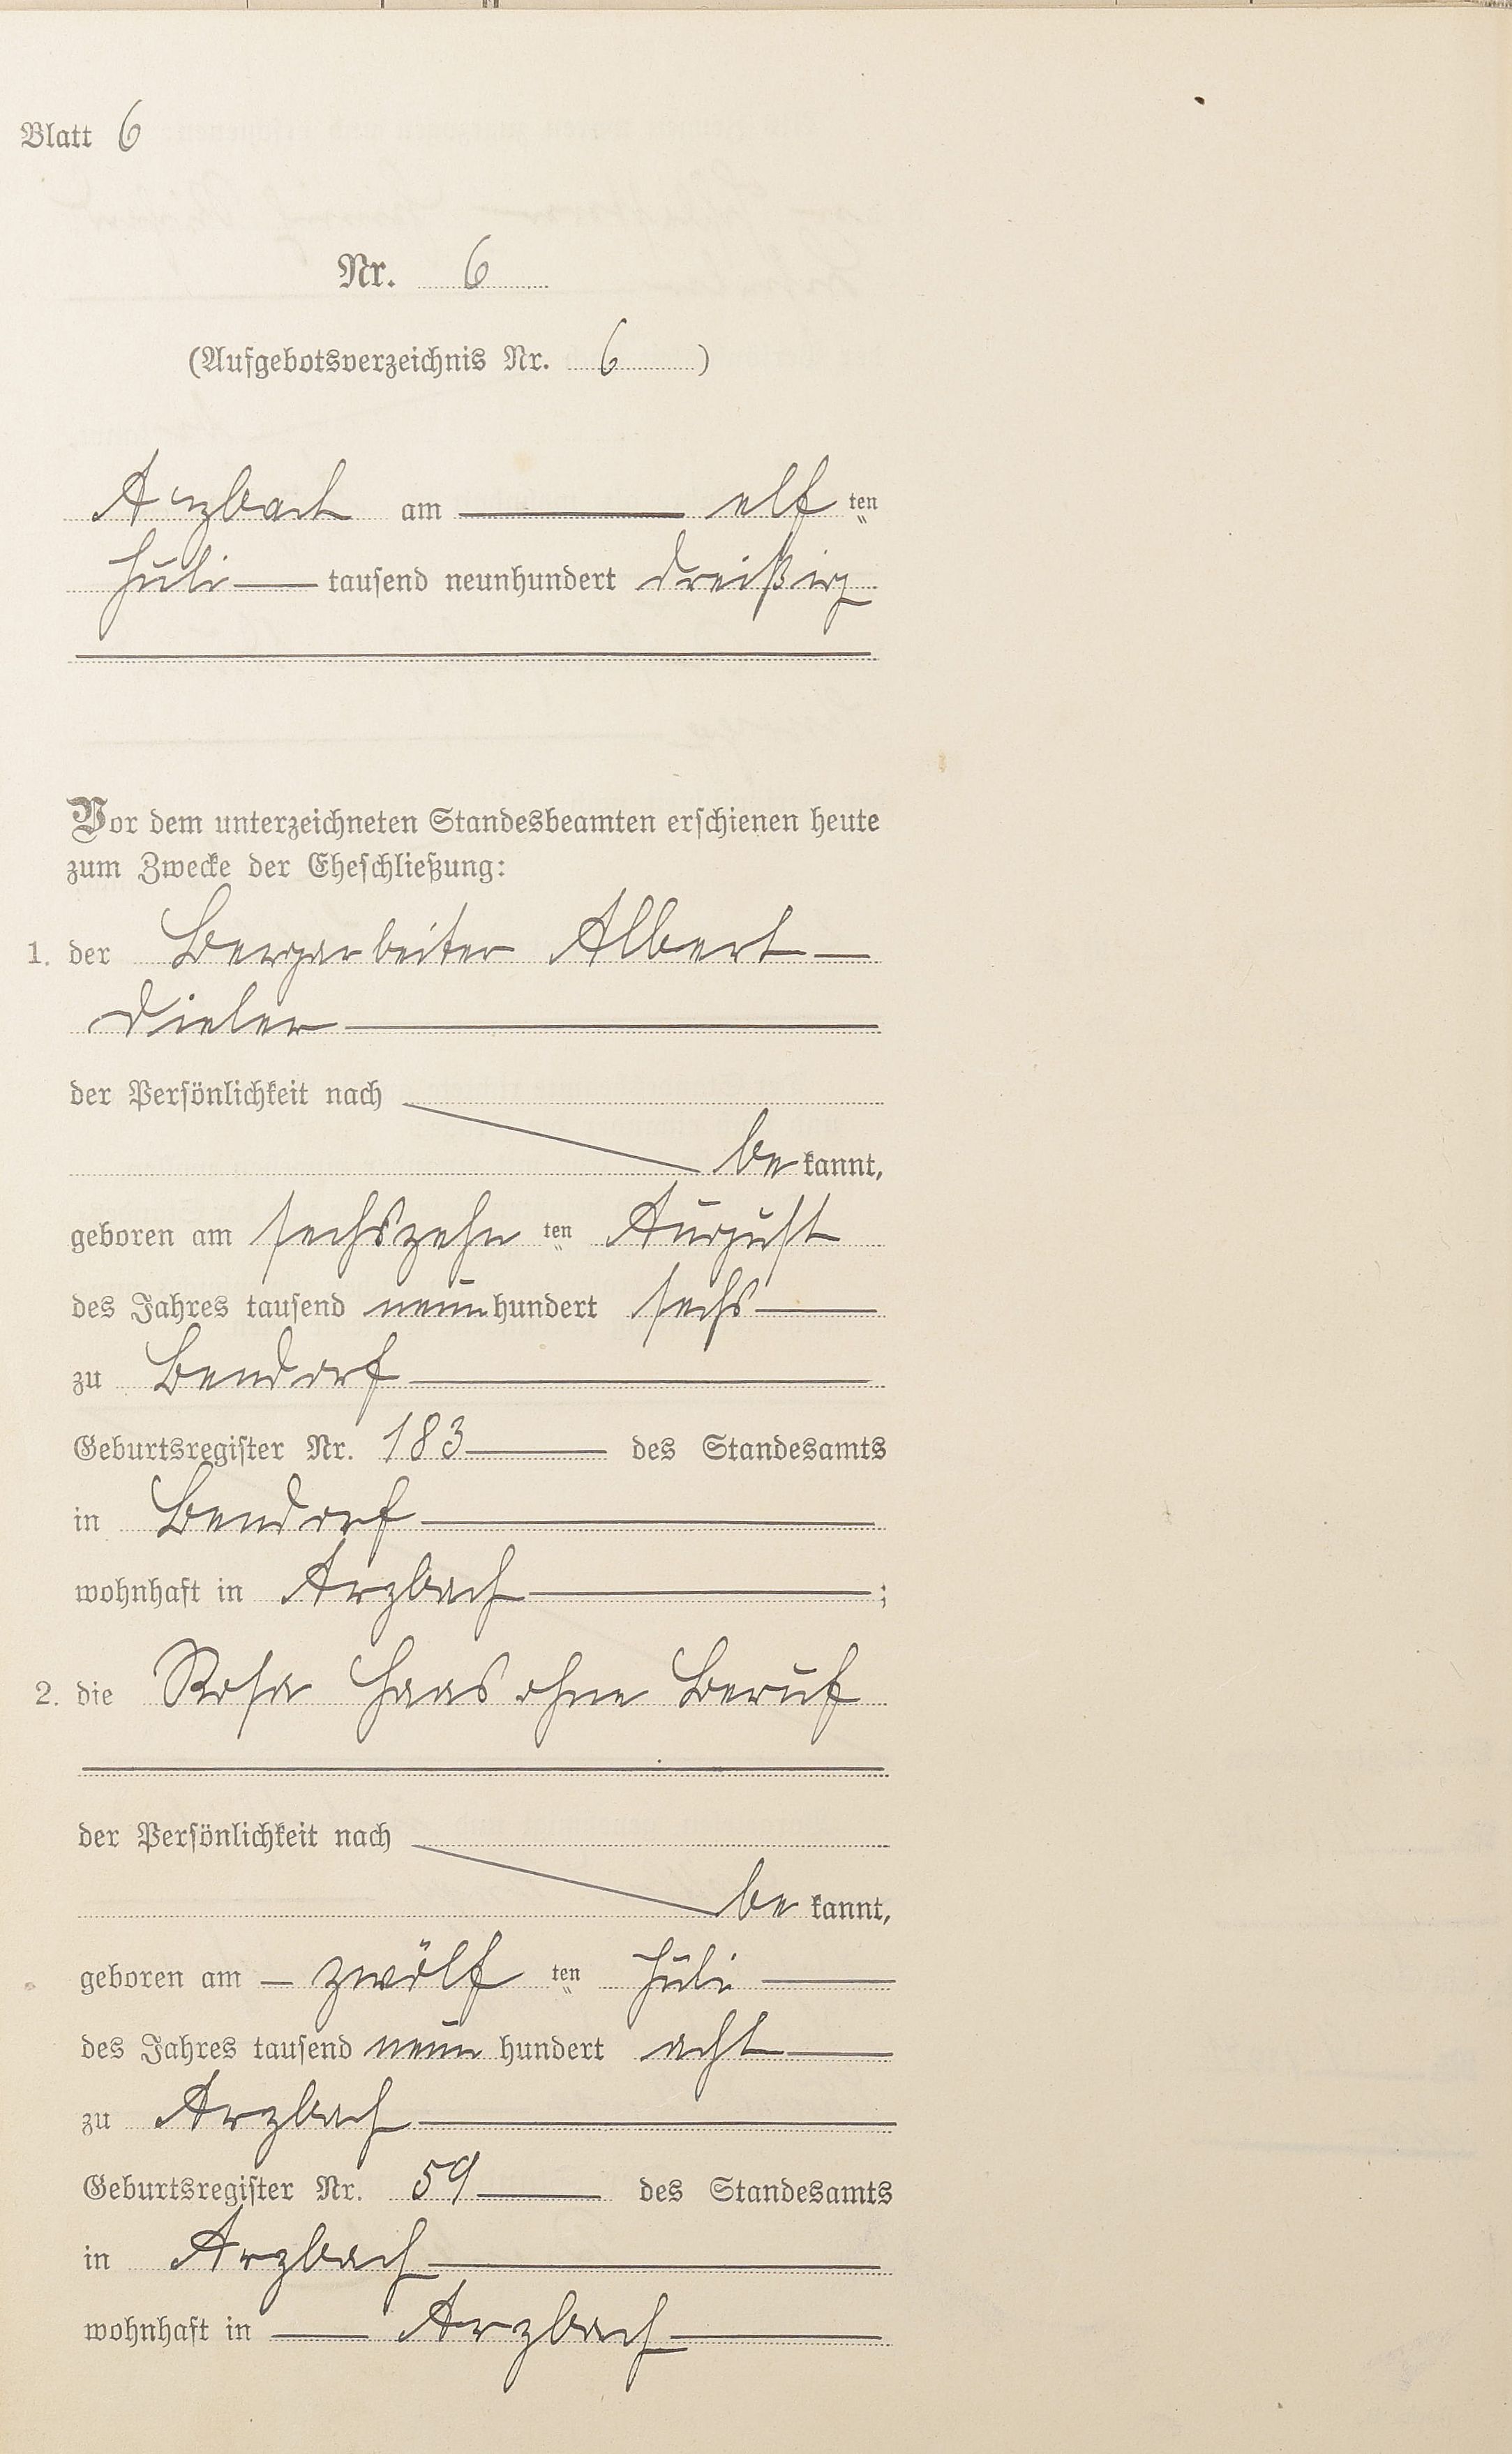 Blatt 6
Nr. 6
(Aufgebotsverzeichnis Nr. 6)
Arzbach am elf ten
Juli tausend neunhundert dreißig
Vor dem unterzeichneten Standesbeamten erschienen heute
zum Zwecke der Eheschließung:
1. der Bergarbeiter Albert
Dieler
der Persönlichkeit nach
be kannt,
geboren am sechszehn ten August
des Jahres tausend neun hundert sechs
zu Bendorf
Geburtsregister Nr. 183 des Standesamts
in Bendorf
wohnhaft in Arzbach ;
2. die Rosa Haas ohne Beruf
der Persönlichkeit nach
be kannt,
geboren am zwölf ten Juli
des Jahres tausend neun hundert acht
zu Arzbach
Geburtsregister Nr. 59 des Standesamts
in Arzbach
wohnhaft in Arzbach